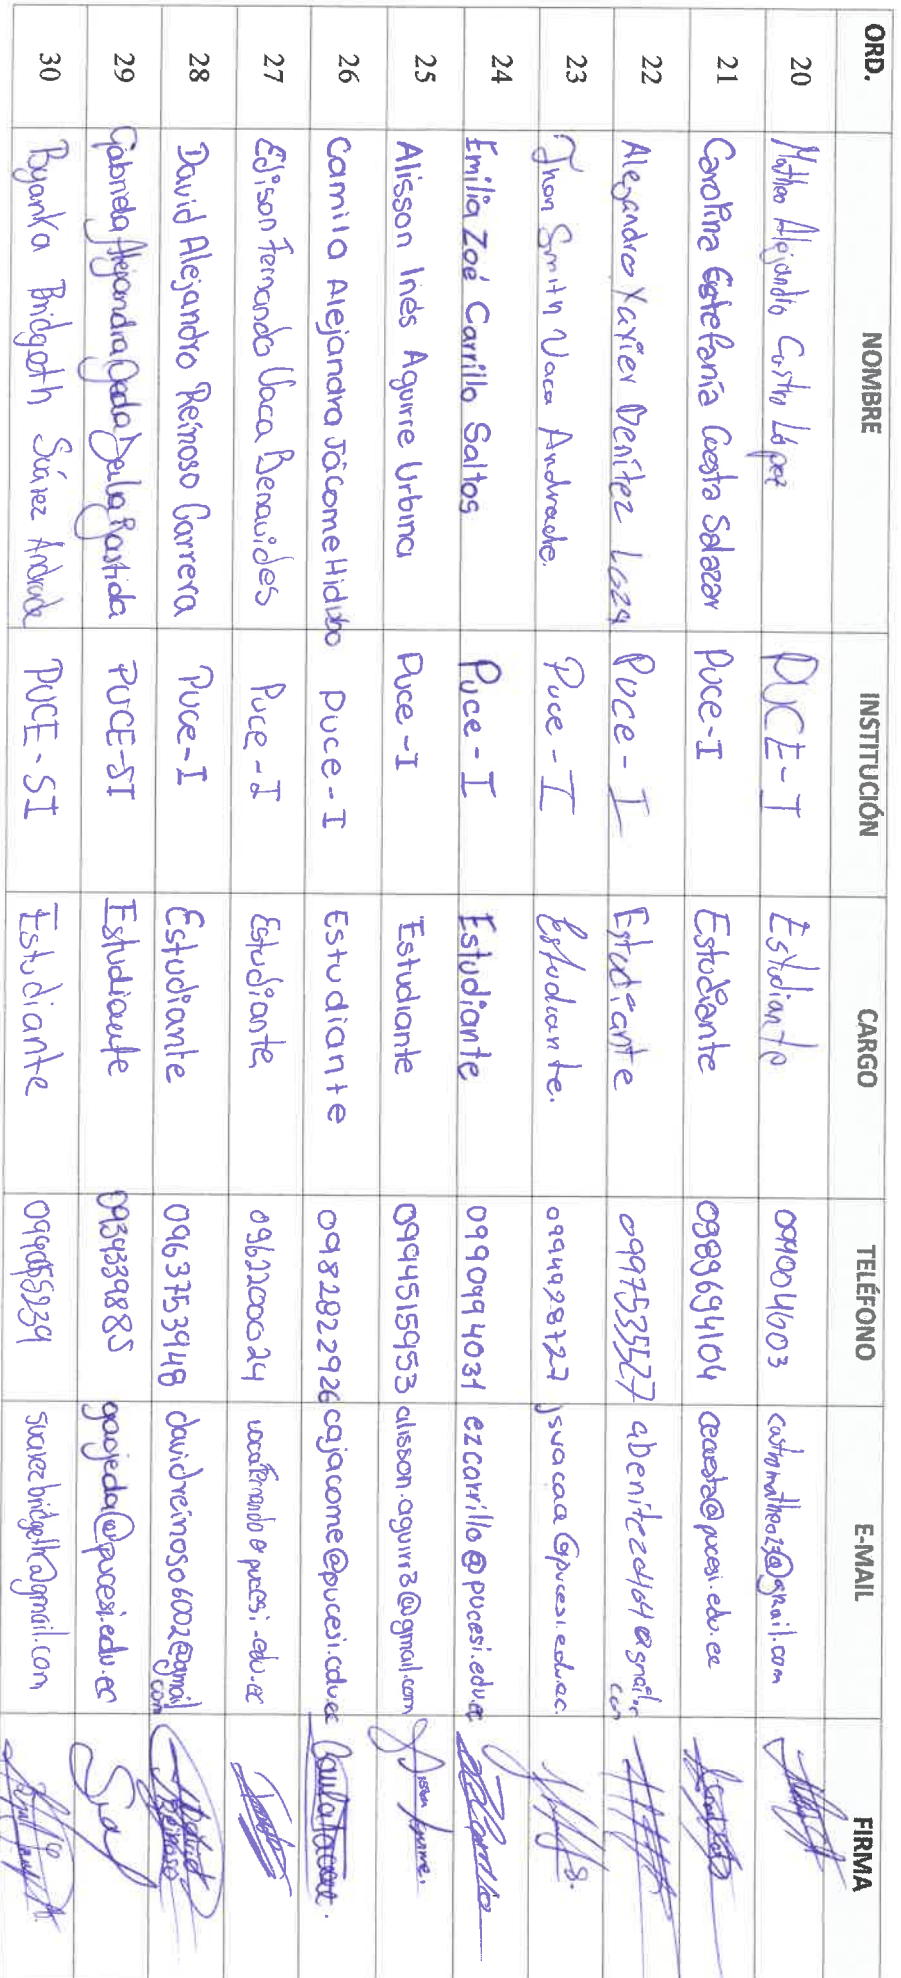 ORD. NOMBRE INSTITUCIÓN CARGO TELÉFONO E-MAIL FIRMA
20 Matheo Alejandro Castro López PUCE-I Estudiante castromatheo27@gmail.com
21 Carolina Estefanía Cuesta Salazar PUCE-I Estudiante 0989694104 cecuesta@pucesi.edu.ec
22 Alejandro Xavier Benítez Loza PUCE-I Estudiante 0997535527
23 Jhon Smith Vaca Andrade. Puce-I Estudiante. 0994928727 jsvacaa@pucesi.edu.ec.
24 Emilia Zoé Carrillo Saltos Puce-I Estudiante 0990994031 ezcarrillo@pucesi.edu.ec
25 Alisson Inés Aguirre Urbina Puce-I Estudiante 0994515953 alisson.aguirr3@gmail.com
26 Camila Alejandra Jácome Hidrobo Puce-I Estudiante 0982822926 cajacome@pucesi.edu.ec
27 Edison Fernando Vaca Benavides Puce-I Estudiante 0962200024 vacafernando@pucesi.edu.ec
28 David Alejandro Reinoso Carrera Puce-I Estudiante 0963753948 davidreinoso6002@gmail.com David Reinoso
29 Gabriela Alejandra Ojeda De la Bastida PUCE-SI Estudiante 0939339885 gaojeda@pucesi.edu.ec
30 Byanka Bridgeth Suárez Andrade PUCE-SI Estudiante suarezbridgeth@gmail.com